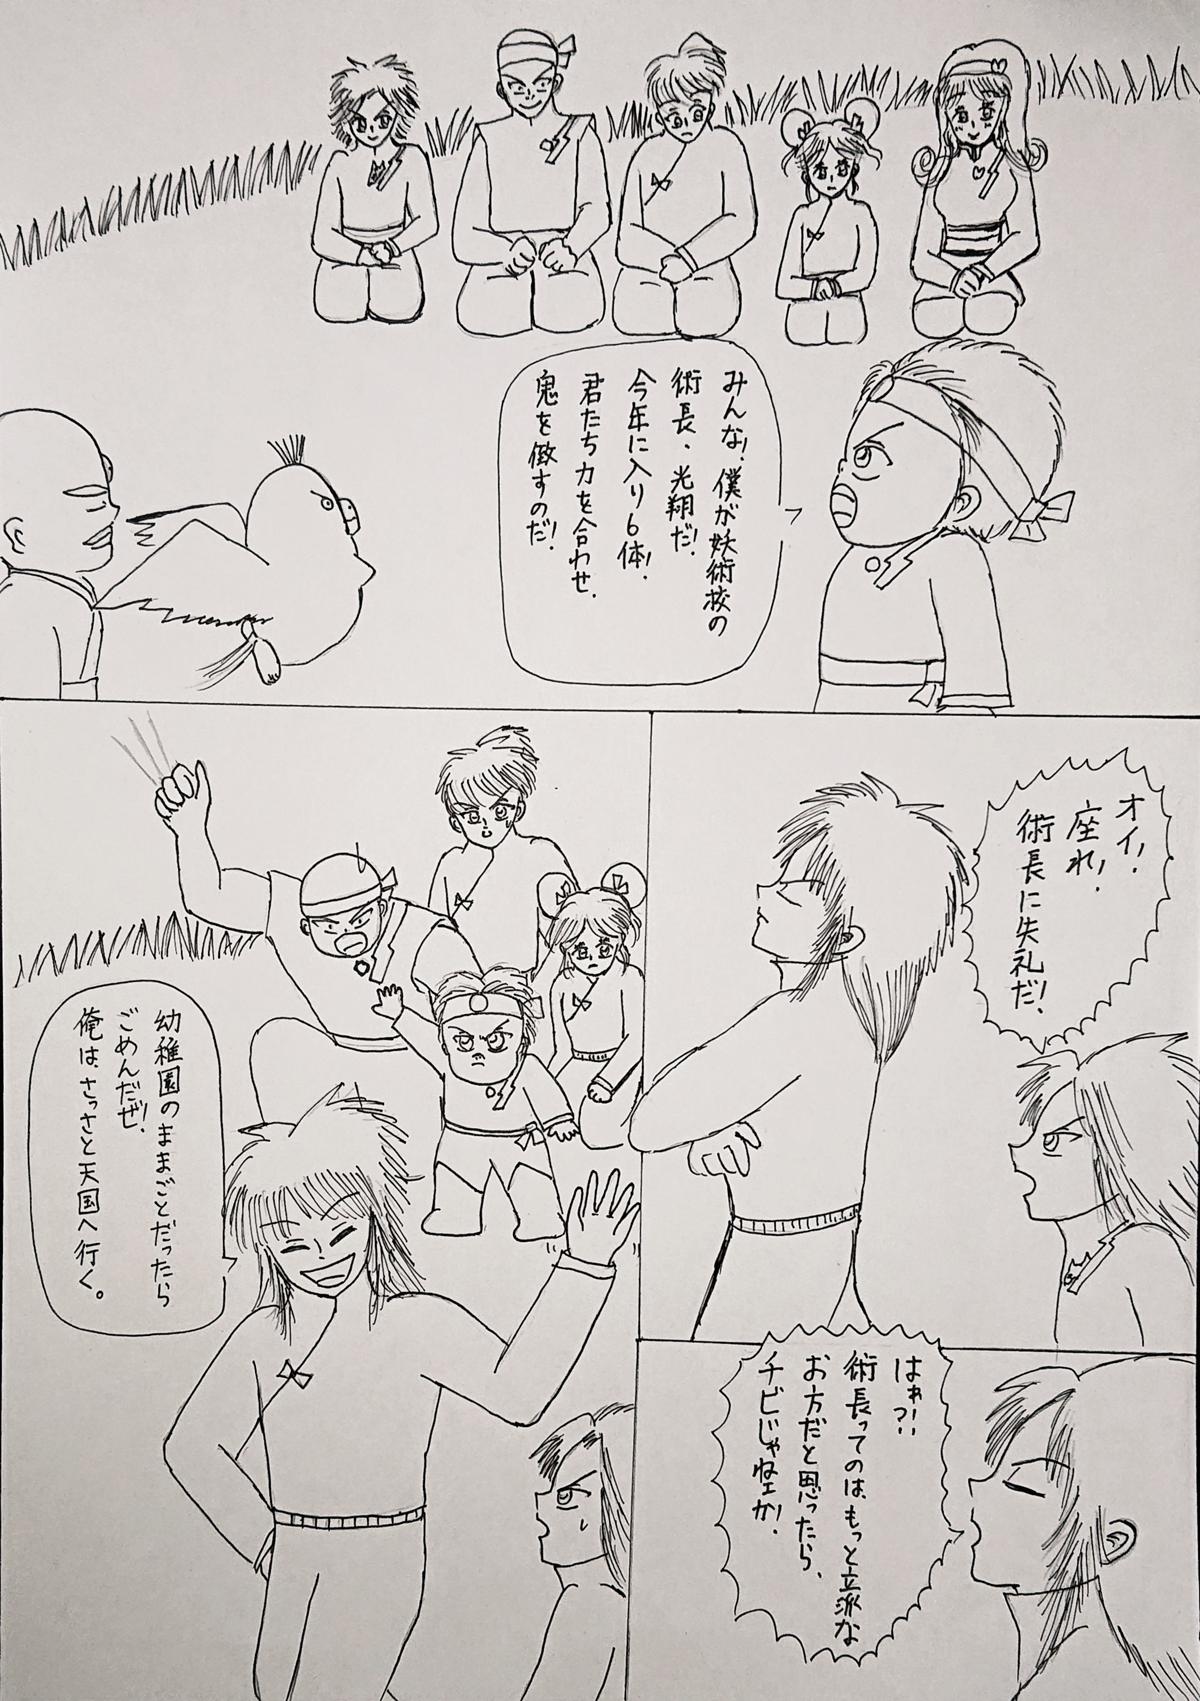 みんな!僕が妖術校の
術長、光翔だ!
今年に入り6体!
君たち力を合わせ、
鬼を倒すのだ!
オイ!
座れ!
術長に失礼だ!
はぁ?!
術長ってのは、もっと立派な
お方だと思ったら、
チビじゃねェか!
幼稚園のままごとだったら
ごめんだぜ!
俺は、さっさと天国へ行く。